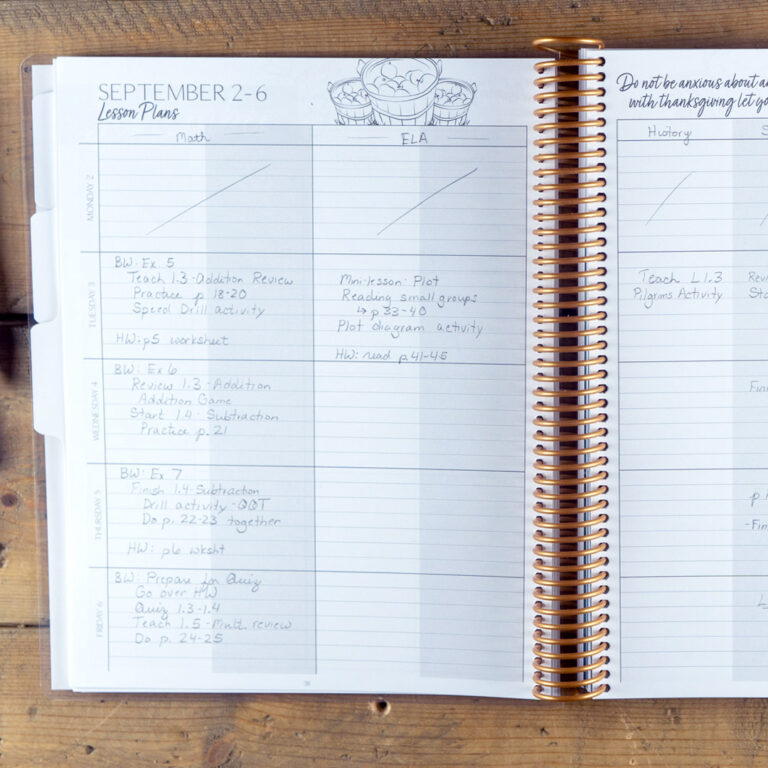 SEPTEMBER 2-6
Lesson Plans
Math
ELA
MONDAY 2
TUESDAY 3
BW: Ex 5
Teach 1.3-Addition Review
Practice p 18-20
Speed Drill activity
HW: p5 worksheet
Mini-lesson: Plot
Reading small groups
↳ p 33-40
Plot diagram activity
HW: read p.41-45
WEDNESDAY 4
BW: Ex 6
Review 1.3-Addition
Addition Game
Start 1.4-Subtraction
Practice p. 21
THURSDAY 5
BW: Ex 7
Finish 1.4-Subtraction
Drill activity -
Do p. 22-23 together
HW: p6 wksht
FRIDAY 6
BW: Prepare for Quiz
Go over HW
Quiz 1.3-1.4
Teach 1.5-Mult. review
Do p. 24-25
Do not be anxious about
with thanksgiving let
History
S
Teach L1.3
Pilgrims Activity
Revi
Fini
p
-Fin
L